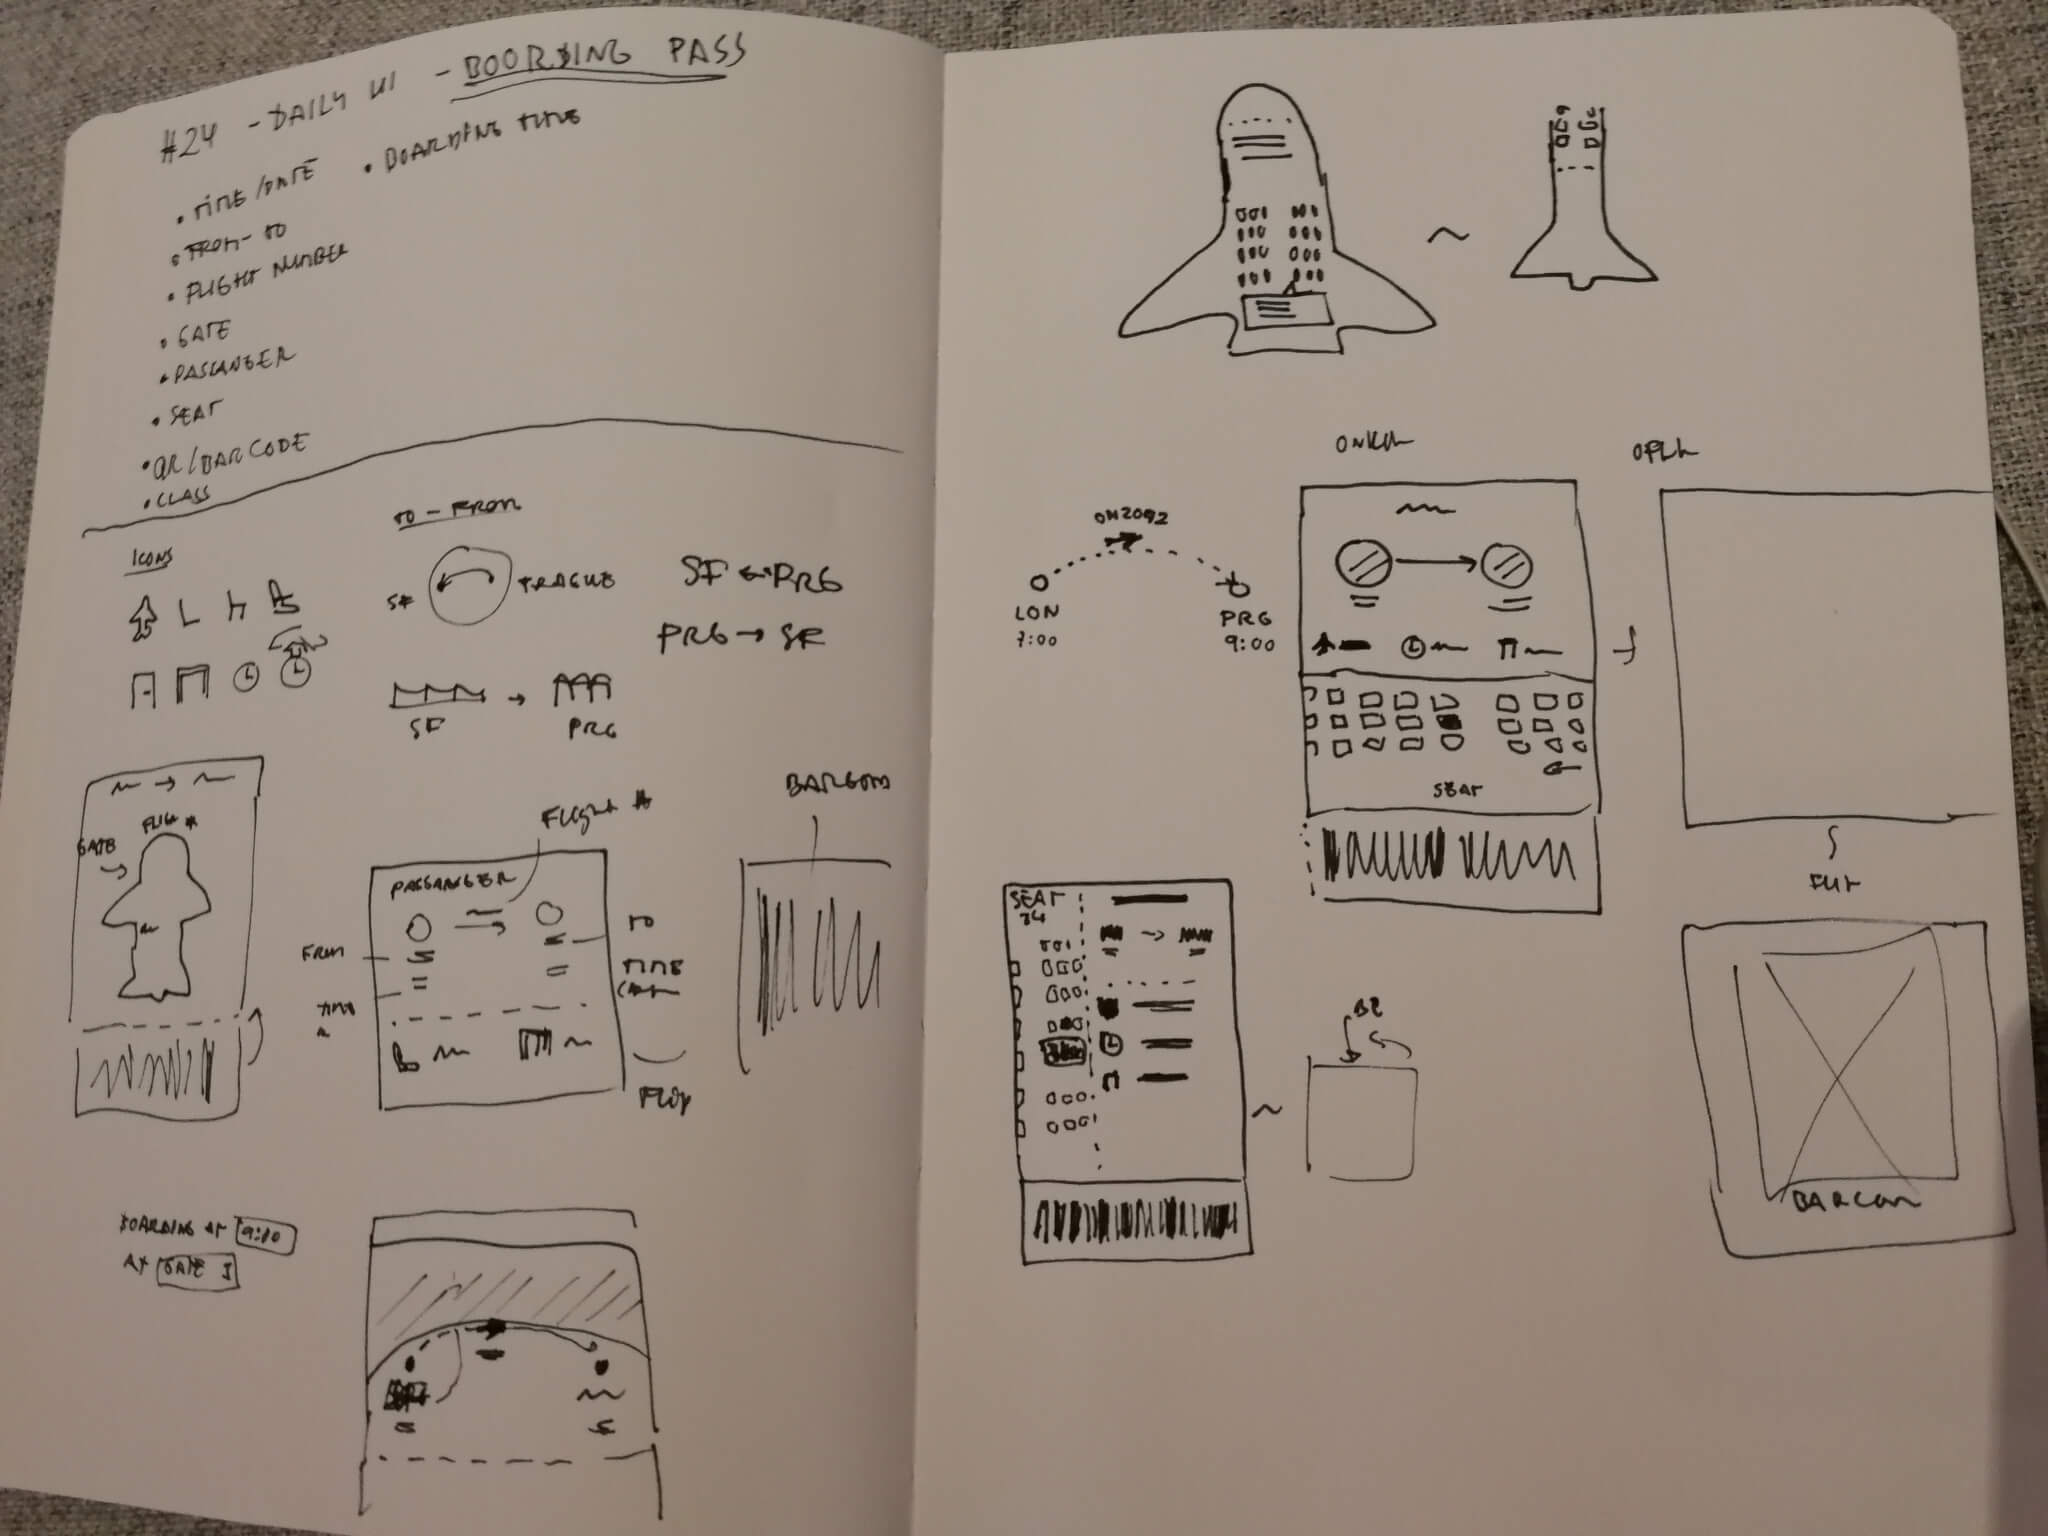 #24 - DAILY UI - BOORDING PASS
• TIME/DATE
• BOARDING TIME
• FROM-TO
• FLIGHT NUMBER
• GATE
• PASSANGER
• SEAT
• QR/BARCODE
• CLASS
ICONS
TO-FROM
SF
PRAGUE
SF ← PRG
PRG → SF
SF
PRG
GATE
FLIGH #
Flight #
PASSANGER
FROM
TO
TIME
FLIP
BOARDING AT 9:10
AT GATE 3
ON2092
LON
7:00
PRG
9:00
SEAT
SEAT
34